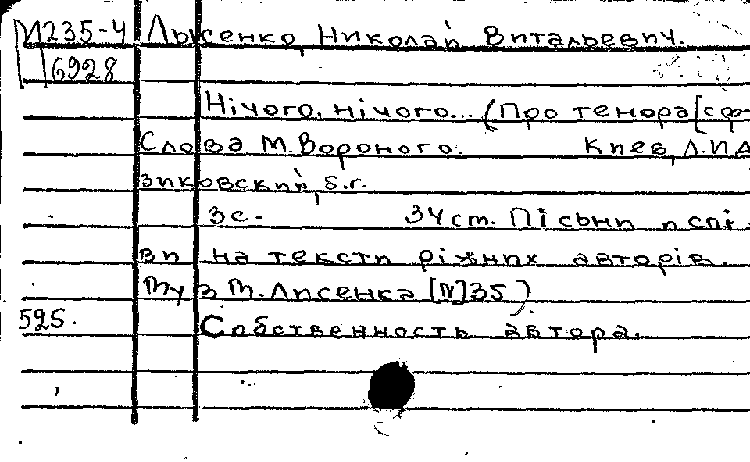 М235-4 Лысенко, Николай Витальевич.
6928
Нічого, нічого... (Про тенора [с ф
Слова М. Вороного. Киев, Л. Ид
зиковский, s.г.
3с. 34 cm. Пісьни и спі
ви на тексти ріжних авторів.
Муз М. Лисенка [N] 35)
525. Собственность автора.